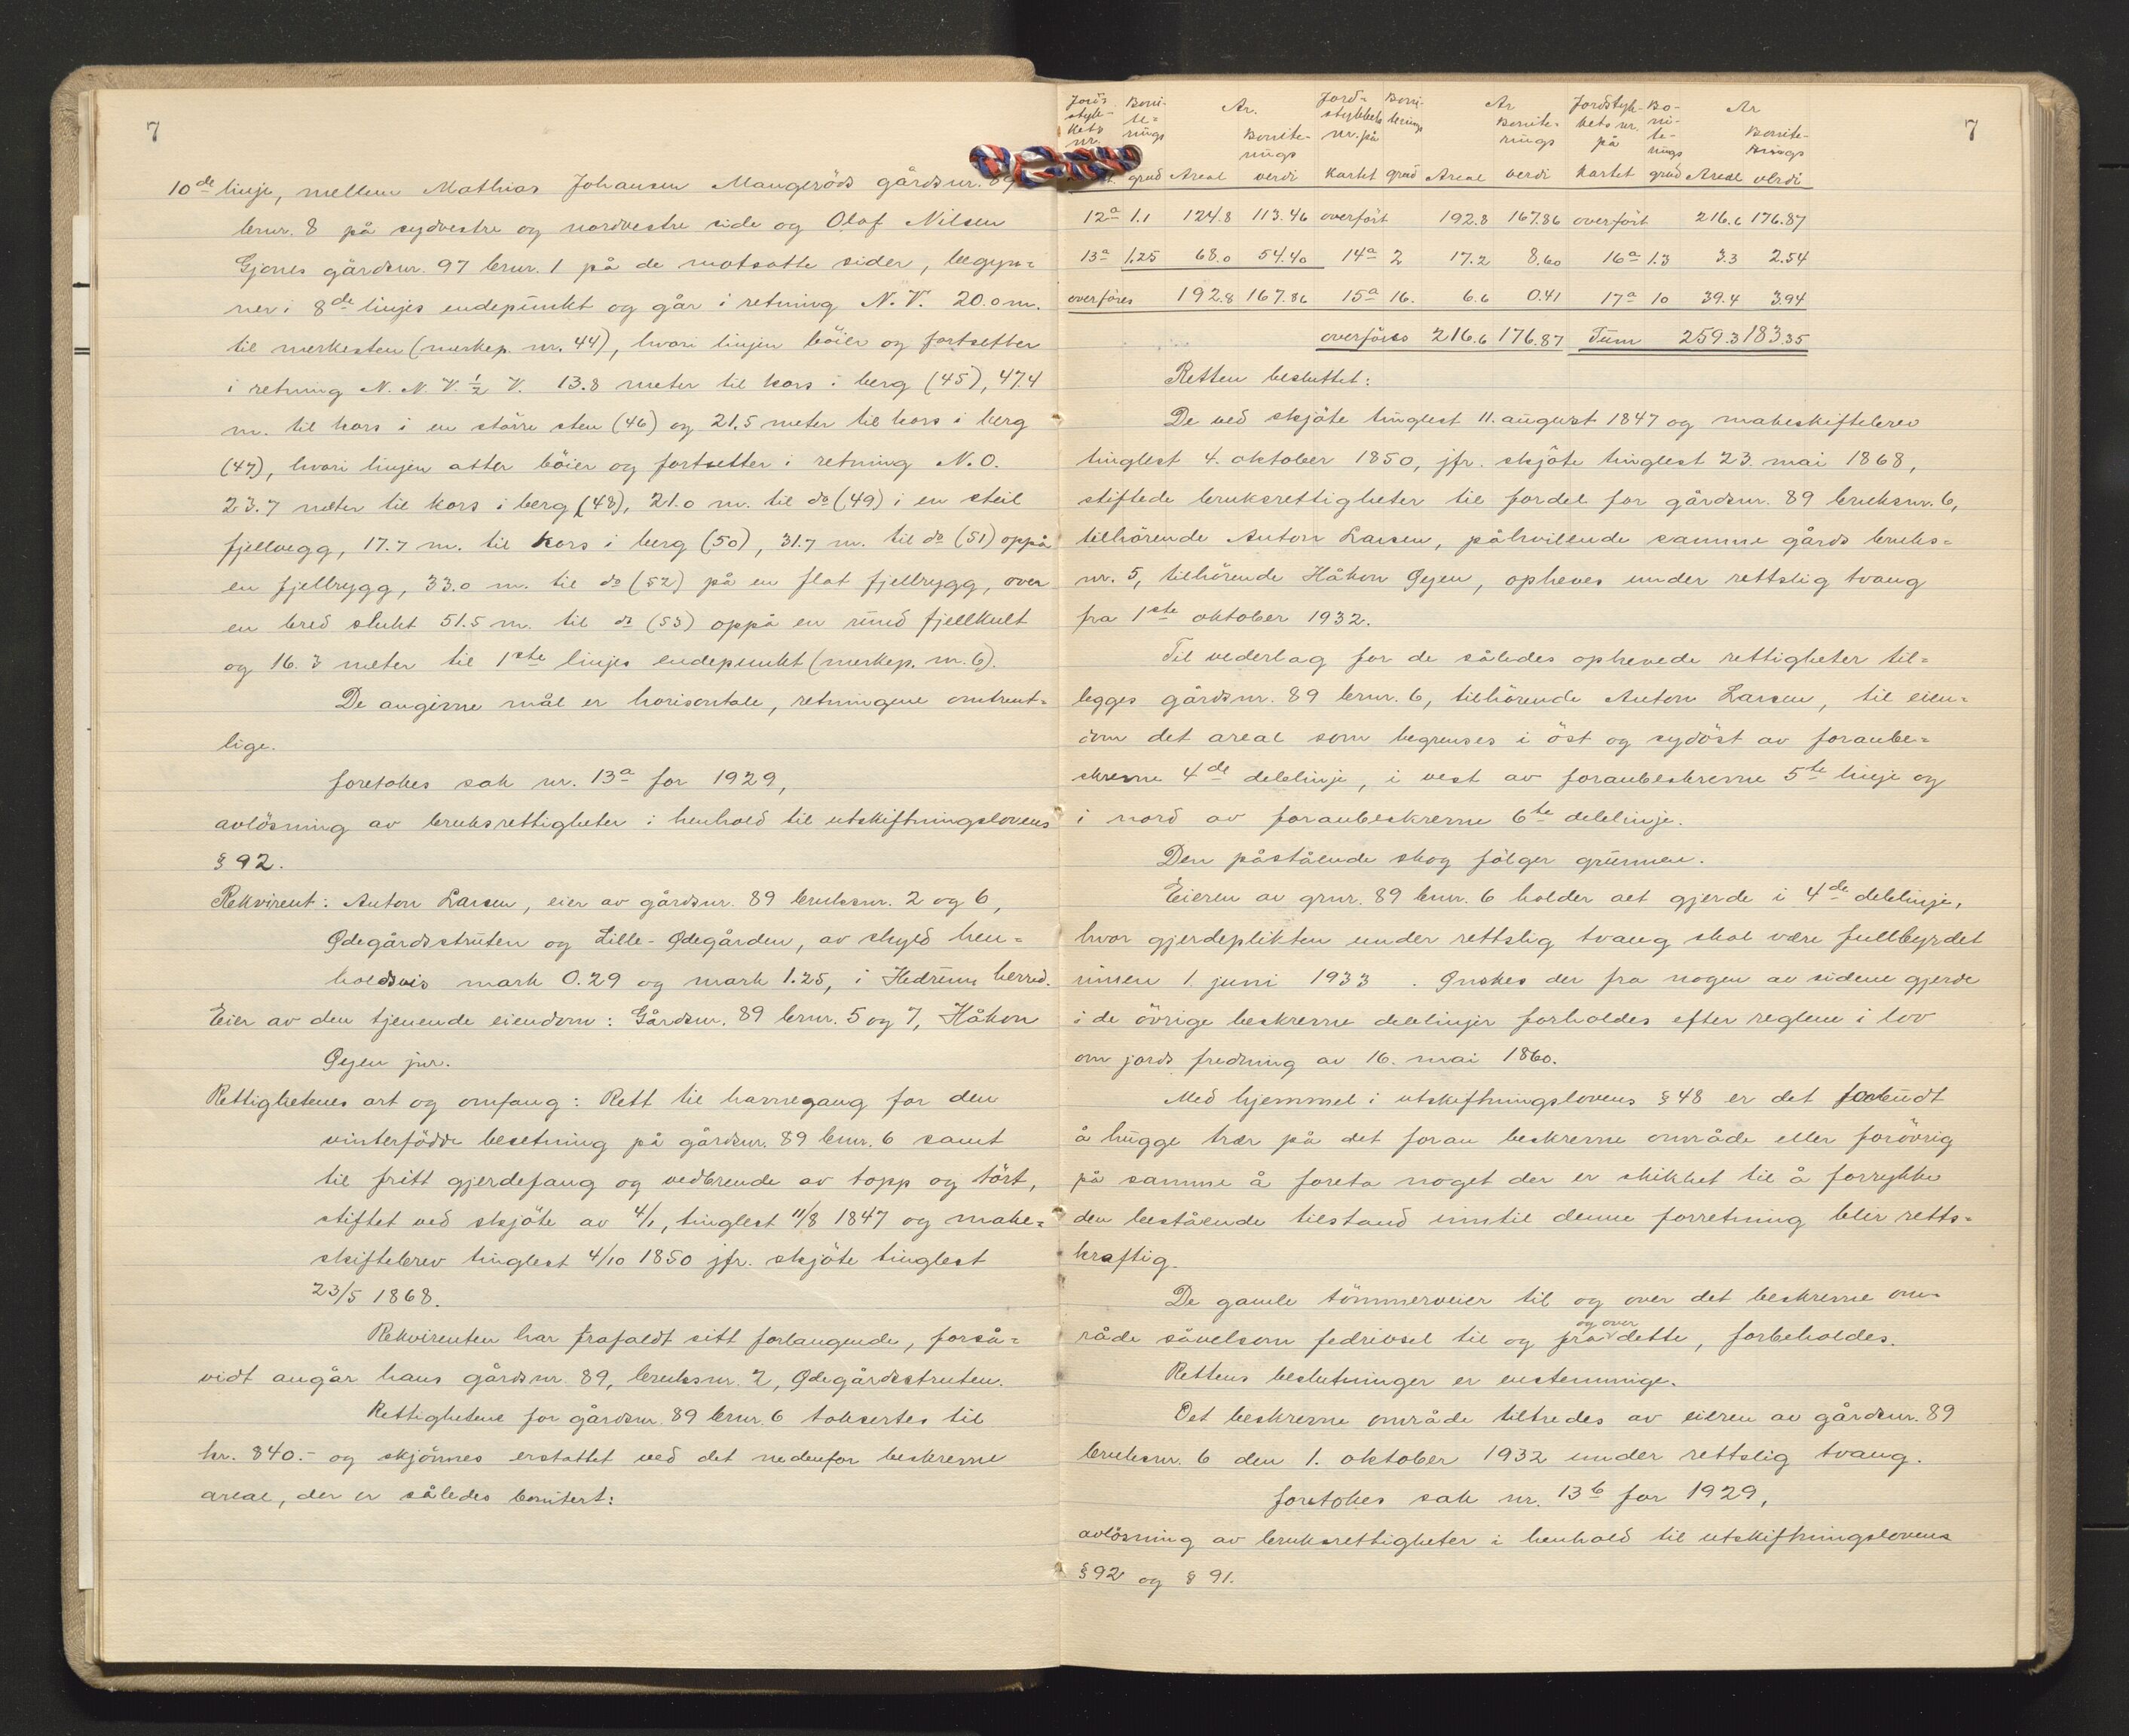 7
10de linje, mellem Mathias Johansen Maugeröds gårdsnr. 89
brnr. 8 på sydvestre og nordvestre side og Olaf Nilsen
Gjones gårdsnr. 97 brnr. 1 på de motsatte sider, begyn=
ner i 8de linjes endepunkt og går i retning N.V. 20.0 m.
til merkesten (merkep. nr. 44), hvori linjen böier og fortsetter
i retning N.N.V. ½ V. 13.8 meter til kors i berg (45), 47.4
m. til kors i en större sten (46) og 21.5 meter til kors i berg
(47), hvori linjen atter böier og fortsetter i retning N.O.
23.7 meter til kors i berg (48), 21.0 m. til do (49) i en steil
fjellvegg, 17.7 m. til kors i berg (50), 31.7 m. til do (51) oppå
en fjellrygg, 33.0 m. til do (52) på en flat fjellrygg, over
en bred slukt 51.5 m. til do (53) oppå en rund fjellkult
og 16.3 meter til 1ste linjes endepunkt (merkep. nr. 6).
De angivne mål er horisontale, retningene omtrent=
lige.
Foretokes sak nr. 13a for 1929,
avlösning av bruksrettigheter i henhold til utskiftningslovens
§ 92.
Rekvirent: Anton Larsen, eier av gårdsnr. 89 bruksnr. 2 og 6,
Ødegårdsstruten og Lille-Ødegården, av skyld hen=
holdsvis mark 0.29 og mark 1.25, i Hedrum herred.
Eier av den tjenende eiendom: Gårdsnr. 89 brnr. 5 og 7, Håkon
Øyen jnr.
Rettighetenes art og omfang: Rett til havnegang for den
vinterfödde besetning på gårdsnr. 89 brnr. 6 samt
til fritt gjerdefang og vedbrende av topp og tört,
stiftet ved skjöte av 4/1, tinglest 11/8 1847 og make=
skiftebrev tinglest 4/10 1850 jfr. skjöte tinglest
23/5 1868.
Rekvirenten har frafaldt sitt forlangende, forså=
vidt angår hans gårdsnr. 89, bruksnr. 2, Ødegårdsstruten.
Rettighetene for gårdsnr. 89 brnr. 6 taksertes til
kr. 840.- og skjönnes erstattet ved det nedenfor beskrevne
areal, der er således bonitert:
7
Jord- stykkets nr. Boni- te- rings grad Ar. Areal Bonite- rings verdi Jord- stykkets nr. på kartet Boni- terings grad Ar Areal Bonite- rings verdi Jordstyk- kets nr. på kartet Bo- ni- te- rings grad Ar Areal Bonite- rings verdi
12a 1.1 124.8 113.46 overfört 192.8 167.86 overfört 216.6 176.87
13a 1.25 68.0 54.40 14a 2 17.2 8.60 16a 1.3 3.3 2.54
overföres 192.8 167.86 15a 16. 6.6 0.41 17a 10 39.4 3.94
overföres 216.6 176.87 Sum 259.3 183.35
Retten besluttet:
De ved skjöte tinglest 11. august 1847 og makeskiftebrev
tinglest 4. oktober 1850, jfr. skjöte tinglest 23. mai 1868,
stiftede bruksrettigheter til fordel for gårdsnr. 89 bruksnr. 6,
tilhörende Anton Larsen, påhvilende samme gårds bruks=
nr. 5, tilhörende Håkon Øyen, opheves under rettslig tvang
fra 1ste oktober 1932.
Til vederlag for de således ophevede rettigheter til=
legges gårdsnr. 89 brnr. 6, tilhörende Anton Larsen, til eien=
dom det areal som begrenses i öst og sydöst av foranbe=
skrevne 4de delelinje, i vest av foranbeskrevne 5te linje og
i nord av foranbeskrevne 6te delelinje.
Den påstående skog fölger grunnen.
Eieren av grnr. 89 brnr. 6 holder alt gjerde i 4de delelinje,
hvor gjerdeplikten under rettslig tvang skal være fullbyrdet
innen 1. juni 1933. Ønskes der fra nogen av sidene gjerde
i de övrige beskrevne delelinjer forholdes efter reglene i lov
om jords fredning av 16. mai 1860.
Med hjemmel i utskiftningslovens § 48 er det forbudt
å hugge trær på det foran beskrevne område eller forövrig
på samme å foreta noget der er skikket til å forrykke
den bestående tilstand inntil denne forretning blir retts=
kraftig.
De gamle tömmerveier til og over det beskrevne om-
råde såvelsom fedrivsel til og fra og over dette, forbeholdes.
Rettens beslutninger er enstemmige.
Det beskrevne område tiltredes av eieren av gårdsnr. 89
bruksnr. 6 den 1. oktober 1932 under rettslig tvang.
Foretokes sak nr. 13b for 1929,
avlösning av bruksrettigheter i henhold til utskiftningslovens
§ 92 og § 91.